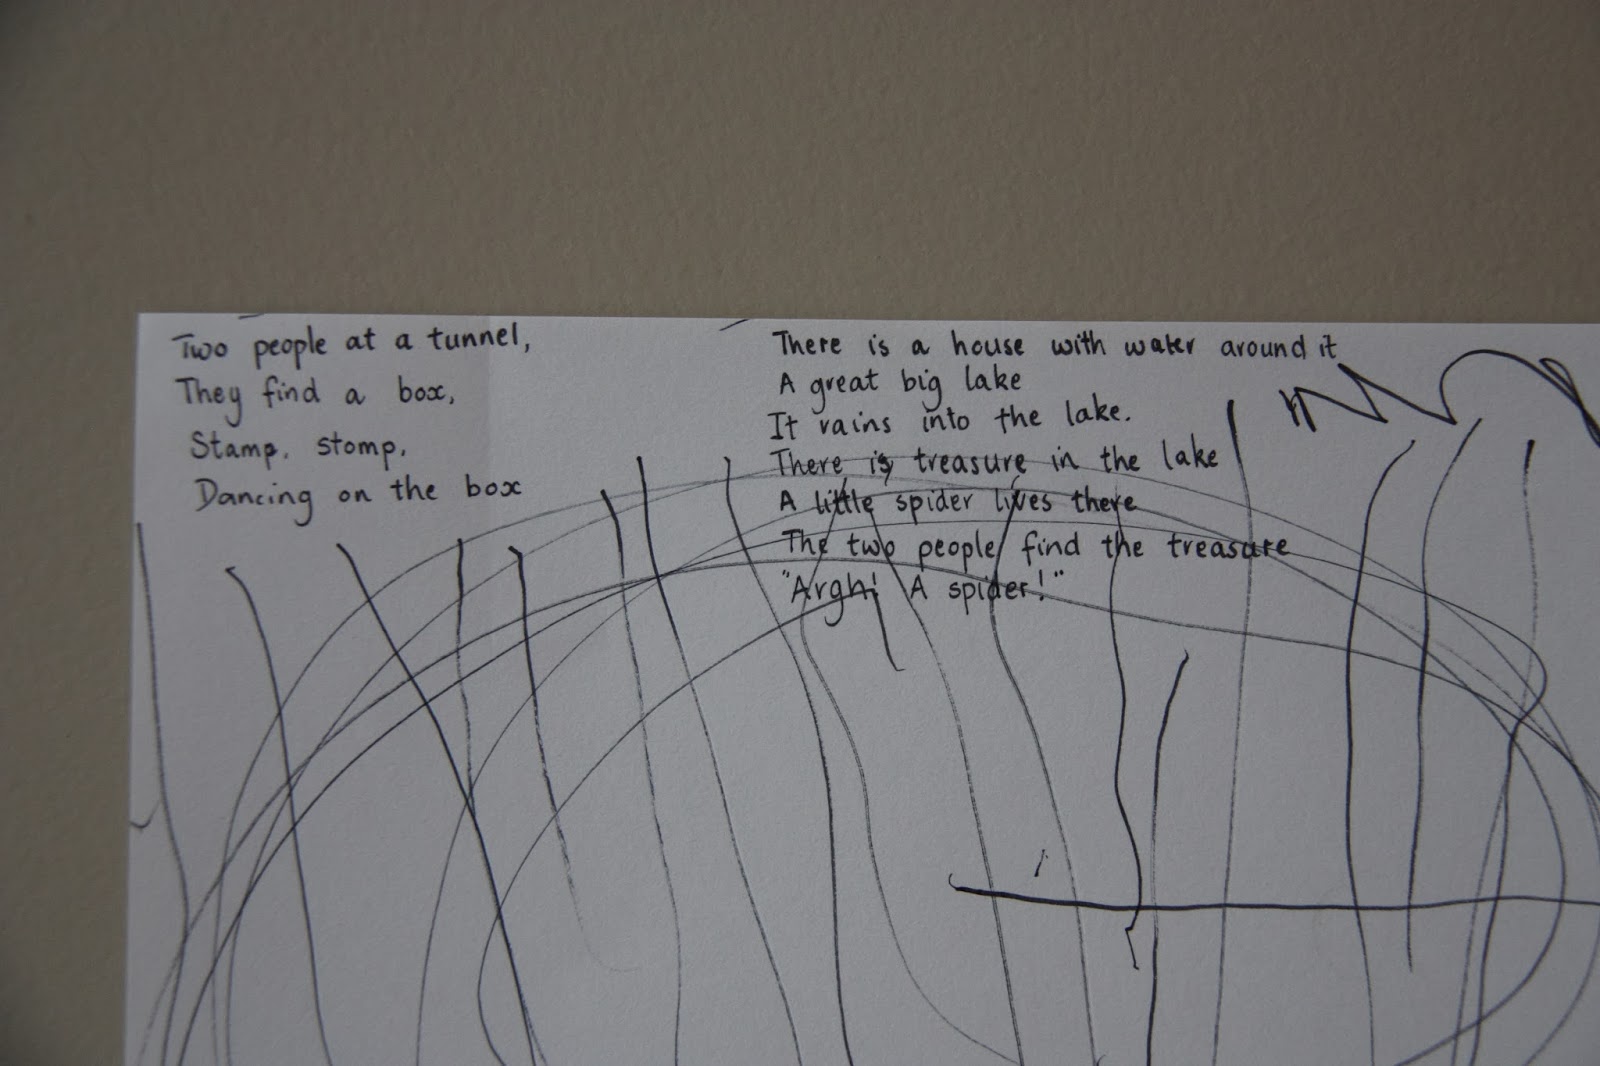 Two people at a tunnel,
They find a box,
Stamp, stomp,
Dancing on the box
There is a house with water around it
A great big lake
It rains into the lake.
There is treasure in the lake
A little spider lives there
The two people find the treasure
"Argh! A spider!"